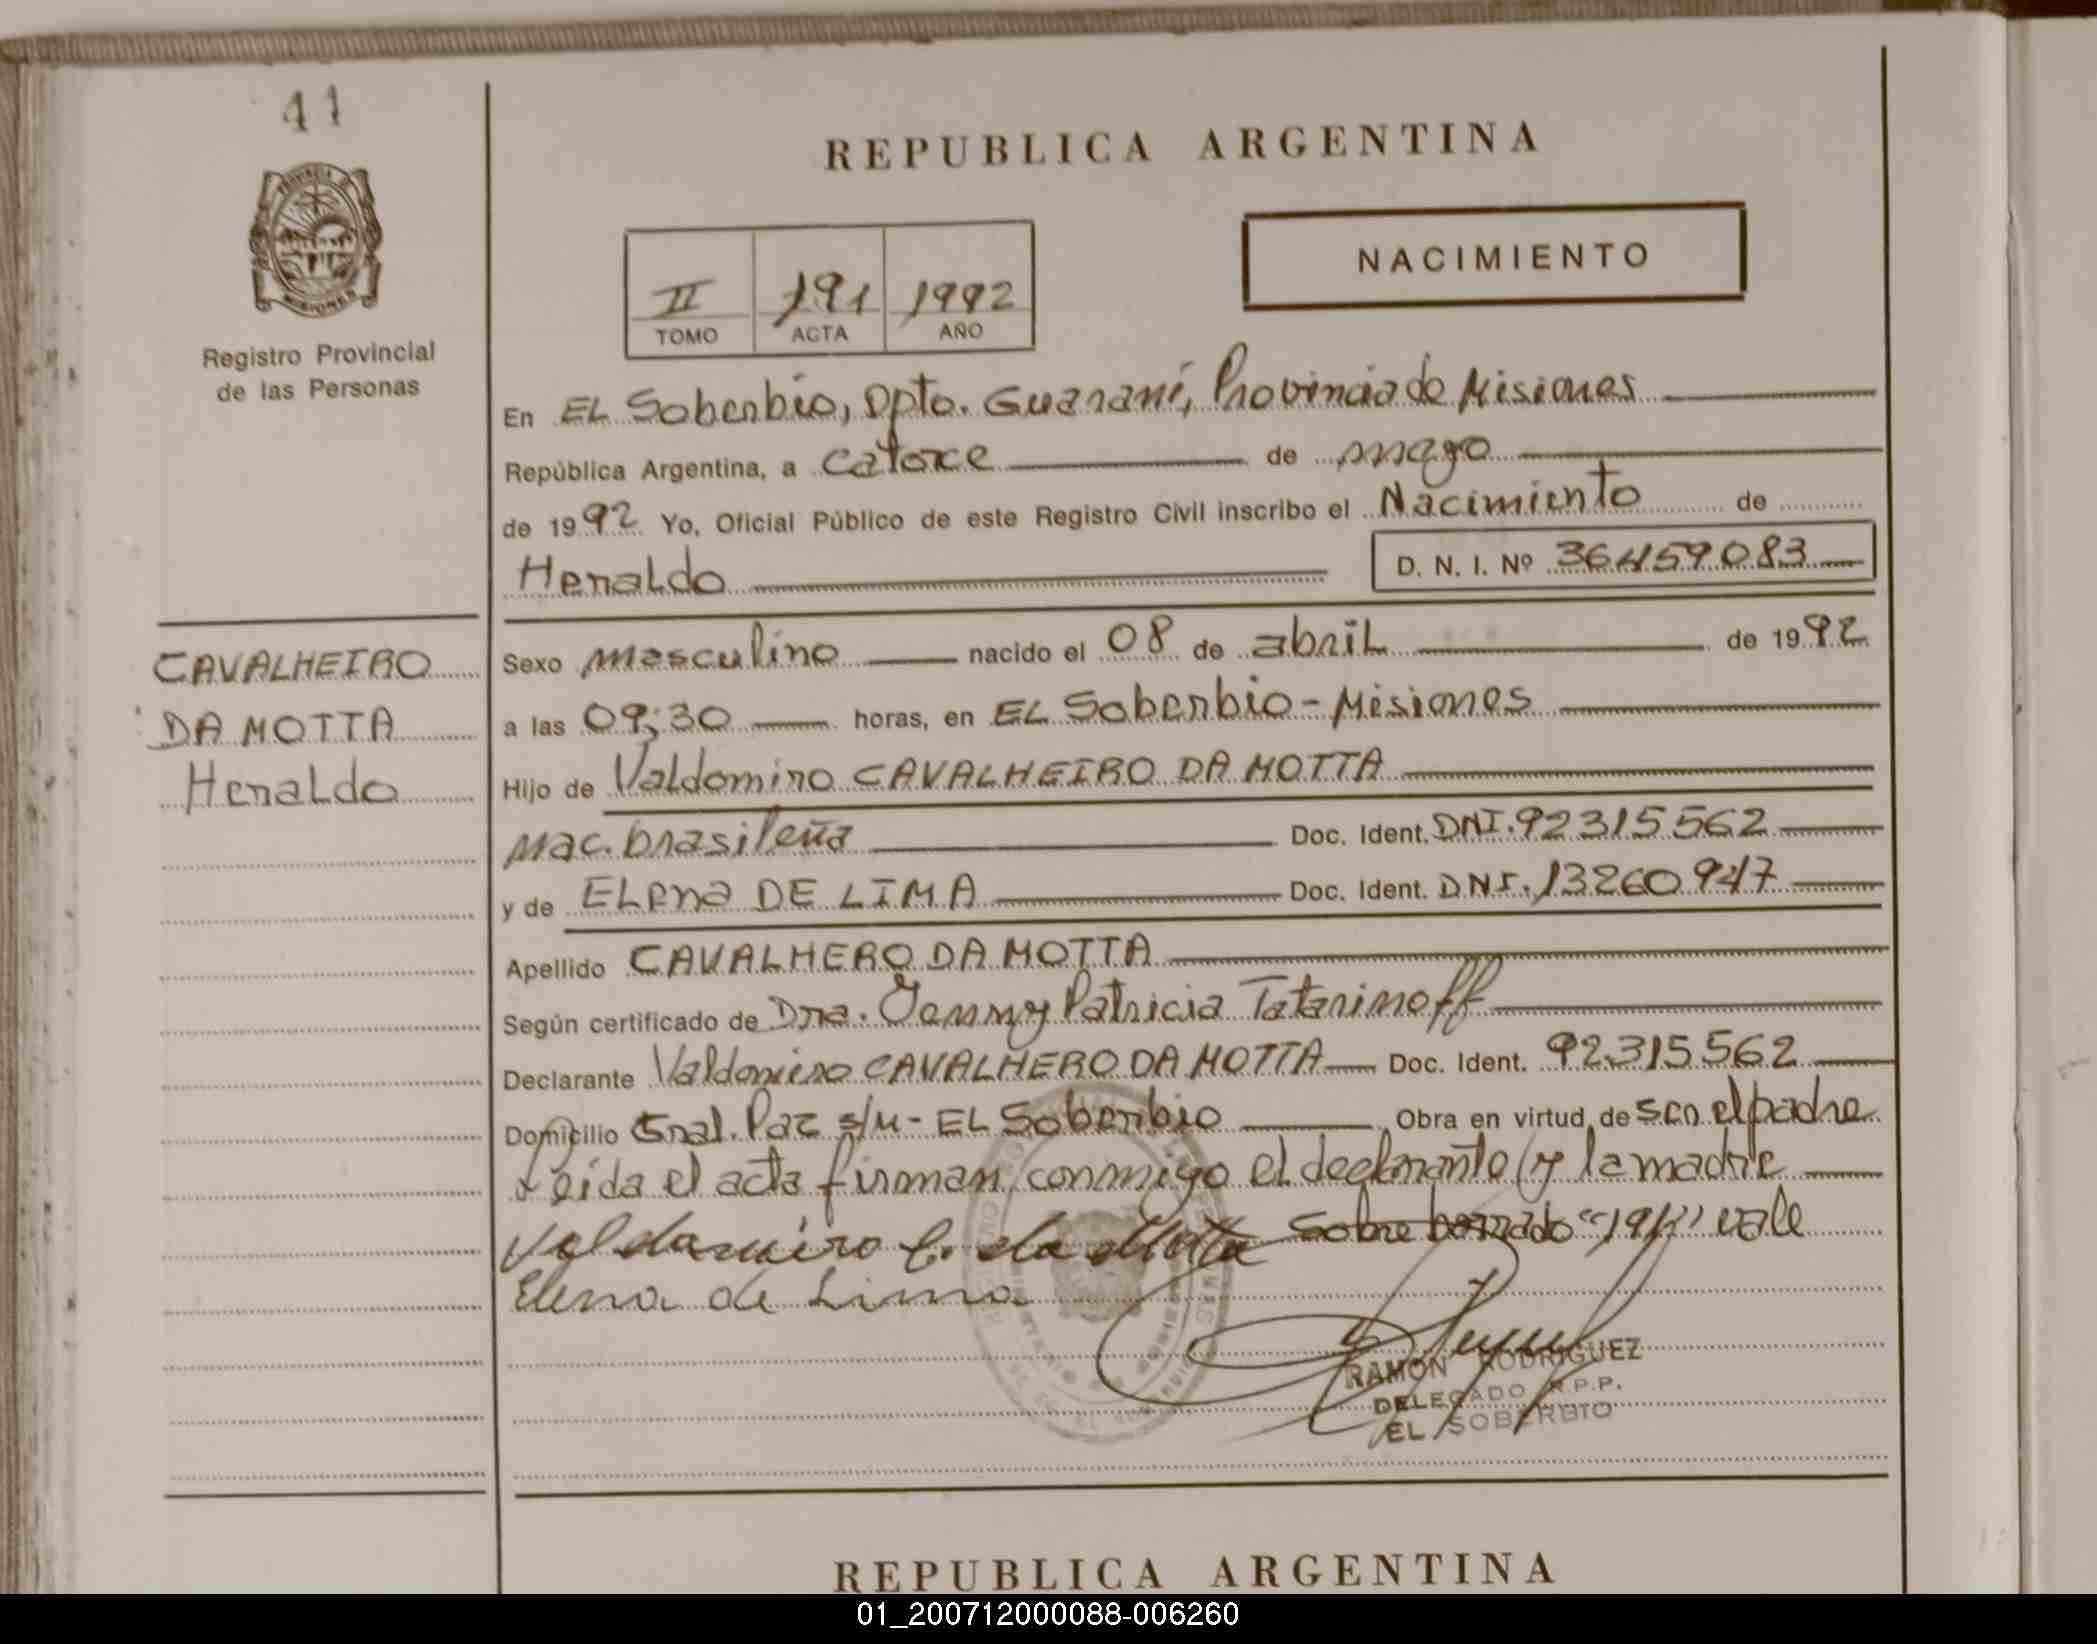 41
PROVINCIA DE
MISIONES
Registro Provincial
de las Personas
CAVALHEIRO
DA MOTTA
Heraldo
REPUBLICA ARGENTINA
II 191 1992
TOMO ACTA AÑO
NACIMIENTO
En EL Soberbio, Dpto. Guaraní, Provincia de Misiones
República Argentina, a catorce de mayo
de 1992 Yo, Oficial Público de este Registro Civil inscribo el Nacimiento de
Heraldo D. N. I. Nº 36459083
Sexo masculino nacido el 08 de abril de 1992
a las 09:30 horas, en EL Soberbio - Misiones
Hijo de Valdomiro CAVALHEIRO DA MOTTA
Nac. brasileña Doc. Ident. DNI. 92315562
y de ELena DE LIMA Doc. Ident. DNI. 13260947
Apellido CAVALHERO DA MOTTA
Según certificado de Dra. Jenny Patricia Tatarinoff
Declarante Valdomiro CAVALHERO DA MOTTA Doc. Ident. 92.315.562
Domicilio Gral. Paz s/n - EL Soberbio Obra en virtud de ser el padre
Leida el acta firman conmigo el declarante y la madre
Valdamiro C. da Motta Sobre borrado "191" vale
Elena de Lima
RAMON RODRIGUEZ
DELEGADO R.P.P.
EL SOBERBIO
REPUBLICA ARGENTINA
01_200712000088-006260